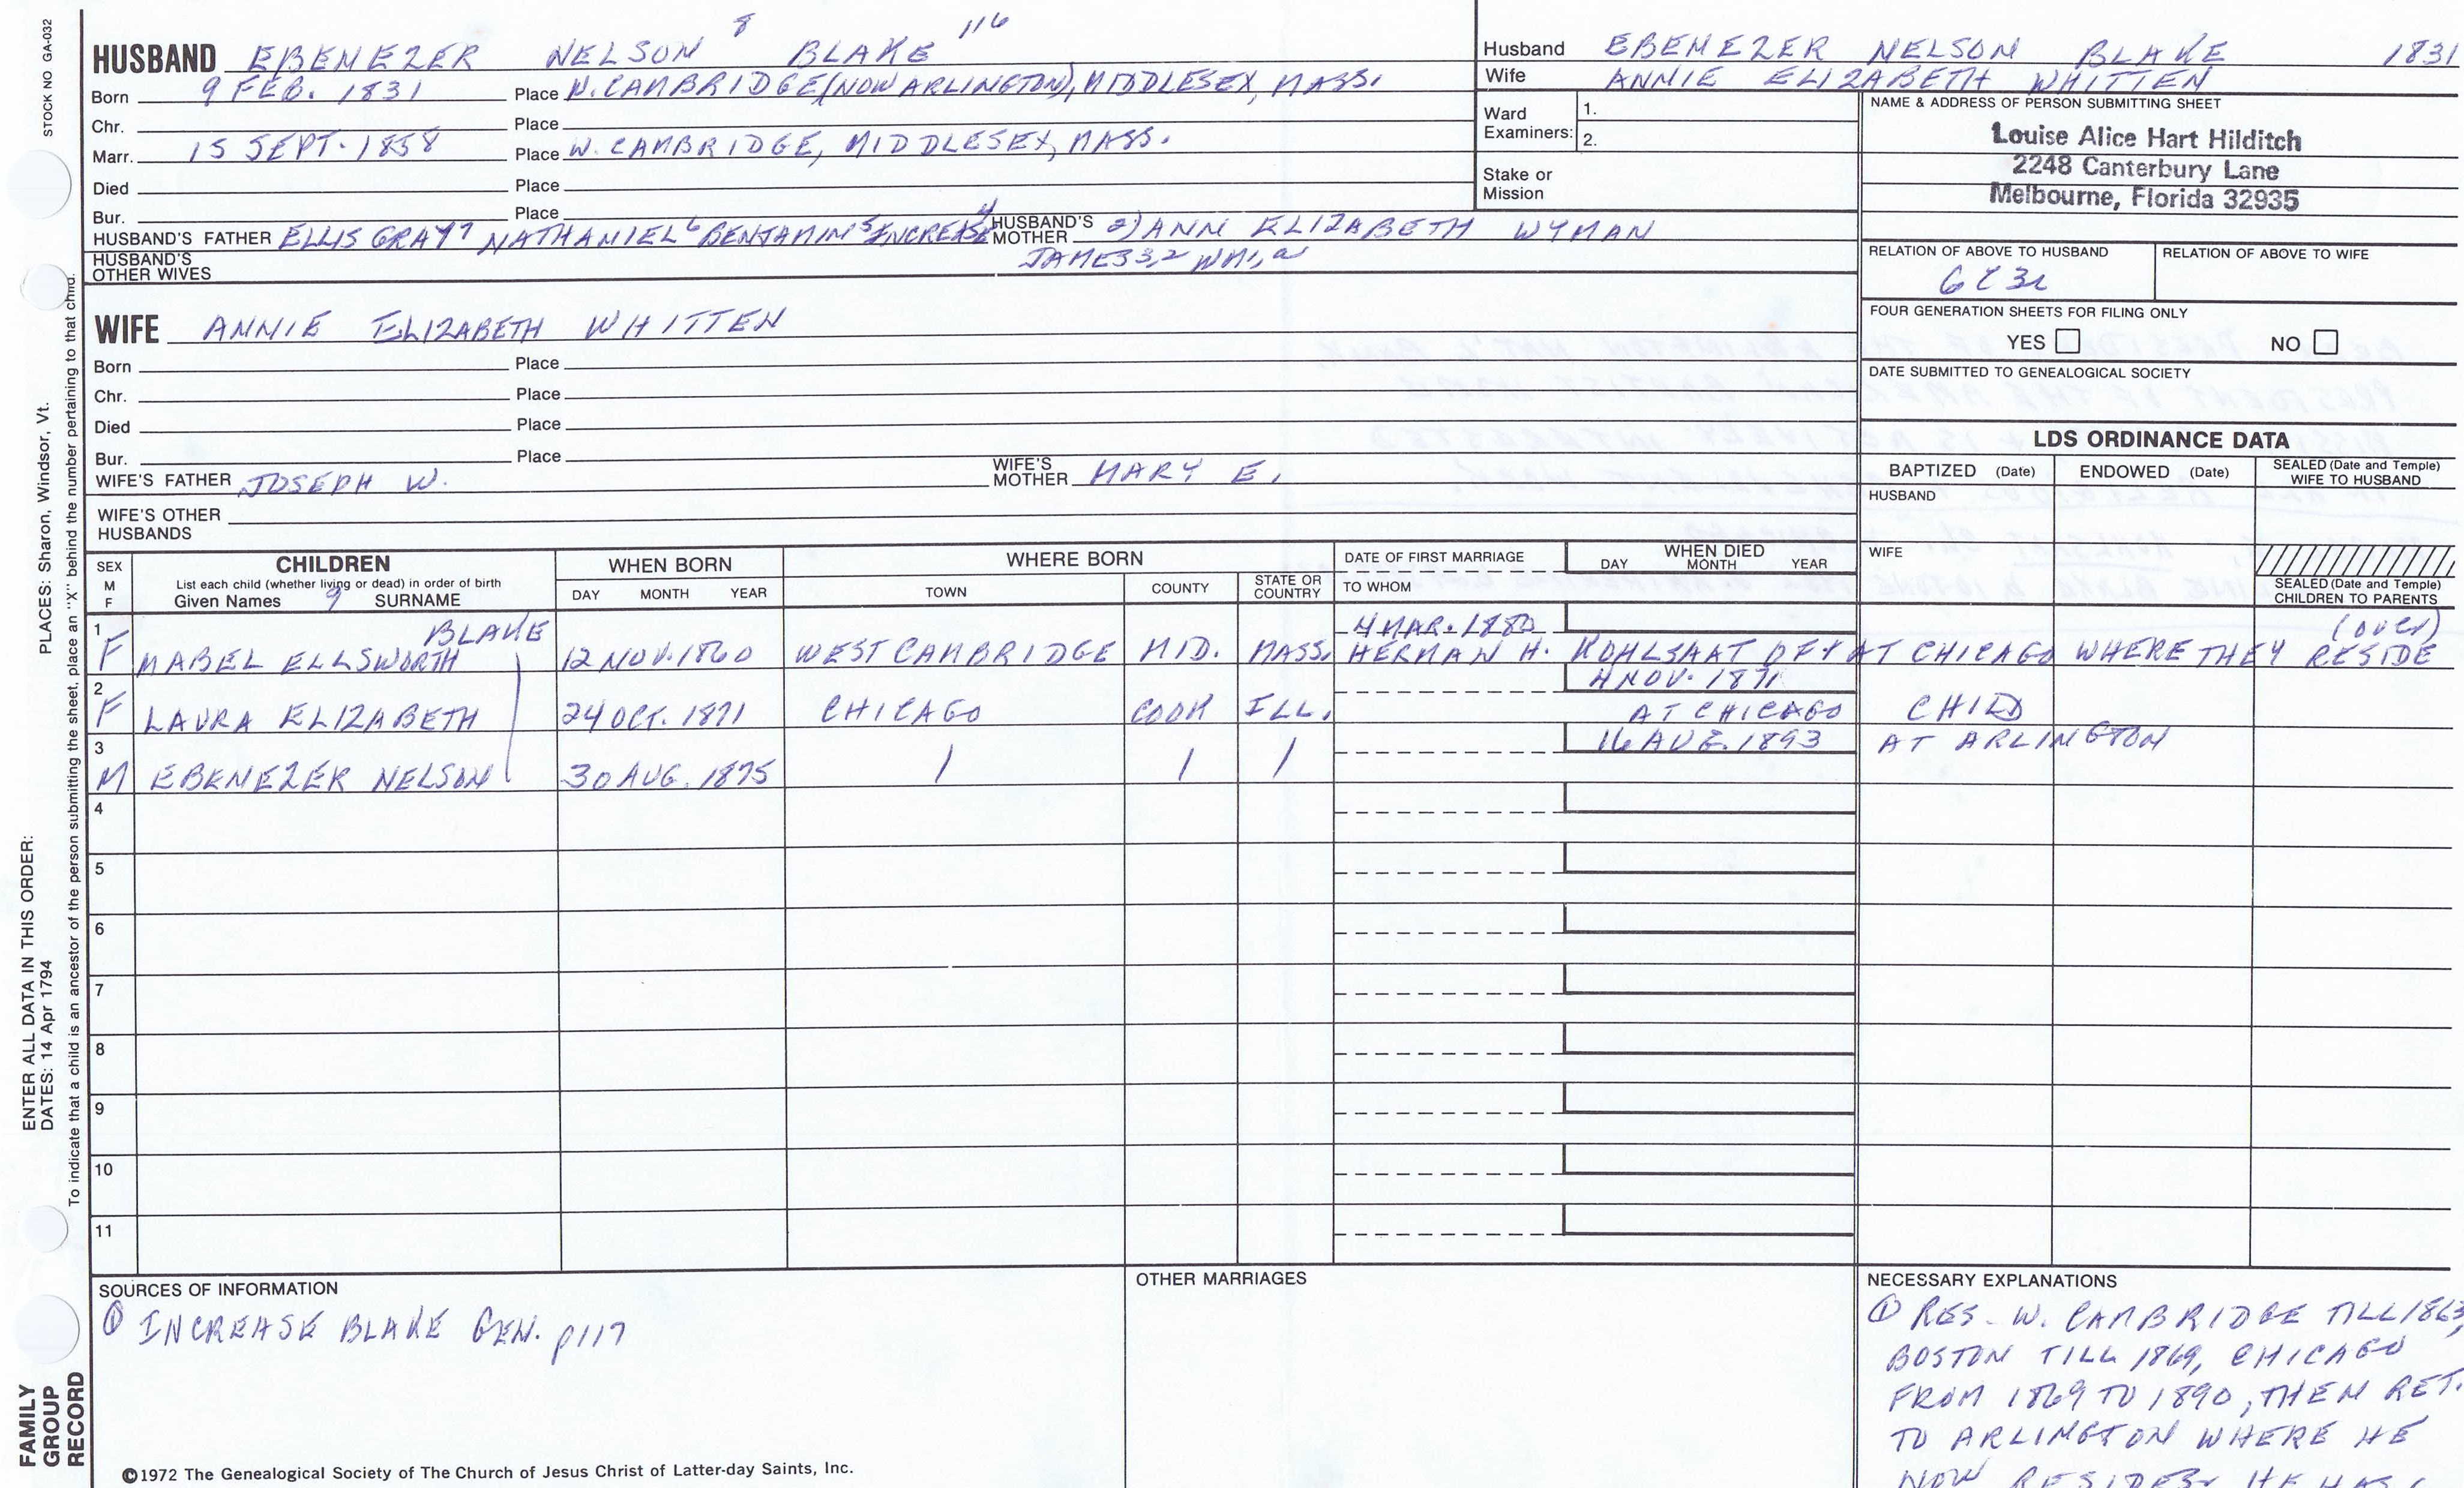 STOCK NO GA-032
HUSBAND EBENEZER NELSON 8 BLAKE 116
Born 9 FEB. 1831 Place W. CAMBRIDGE (NOW ARLINGTON), MIDDLESEX, MASS.
Chr. Place
Marr. 15 SEPT. 1858 Place W. CAMBRIDGE, MIDDLESEX, MASS.
Died Place
Bur. Place
HUSBAND'S FATHER ELLIS GRAY 7 NATHANIEL 6 BENJAMIN 5 INCREASE 4 HUSBAND'S MOTHER 2) ANN ELIZABETH WYMAN
JAMES 3,2 WM 1, a
HUSBAND'S OTHER WIVES
Husband EBENEZER NELSON BLAKE 1831
Wife ANNIE ELIZABETH WHITTEN
Ward Examiners: 1.
2.
Stake or Mission
NAME & ADDRESS OF PERSON SUBMITTING SHEET
Louise Alice Hart Hilditch
2248 Canterbury Lane
Melbourne, Florida 32935
RELATION OF ABOVE TO HUSBAND RELATION OF ABOVE TO WIFE
6C3R
FOUR GENERATION SHEETS FOR FILING ONLY
YES NO
DATE SUBMITTED TO GENEALOGICAL SOCIETY
WIFE ANNIE ELIZABETH WHITTEN
Born Place
Chr. Place
Died Place
Bur. Place
WIFE'S FATHER JOSEPH W. WIFE'S MOTHER MARY E.
WIFE'S OTHER HUSBANDS
LDS ORDINANCE DATA
BAPTIZED (Date) ENDOWED (Date) SEALED (Date and Temple) WIFE TO HUSBAND
HUSBAND
WIFE
SEALED (Date and Temple) CHILDREN TO PARENTS
SEX M F CHILDREN WHEN BORN WHERE BORN DATE OF FIRST MARRIAGE WHEN DIED
List each child (whether living or dead) in order of birth
Given Names 9 SURNAME DAY MONTH YEAR TOWN COUNTY STATE OR COUNTRY TO WHOM DAY MONTH YEAR
1 BLAKE 4 MAR. 1880 (over)
F MABEL ELLSWORTH 12 NOV. 1860 WEST CAMBRIDGE MID. MASS. HERMAN H. KOHLSAAT OF & AT CHICAGO WHERE THEY RESIDE
2 4 NOV. 1871
F LAURA ELIZABETH 24 OCT. 1871 CHICAGO COOK ILL. AT CHICAGO CHILD
3 16 AUG. 1893 AT ARLINGTON
M EBENEZER NELSON 30 AUG. 1875
4
5
6
7
8
9
10
11
SOURCES OF INFORMATION
① INCREASE BLAKE GEN. p117
OTHER MARRIAGES
NECESSARY EXPLANATIONS
① RES. W. CAMBRIDGE TILL 1863,
BOSTON TILL 1869, CHICAGO
FROM 1869 TO 1890, THEN RET.
TO ARLINGTON WHERE HE
NOW RESIDES. HE HAS
©1972 The Genealogical Society of The Church of Jesus Christ of Latter-day Saints, Inc.
ENTER ALL DATA IN THIS ORDER:
DATES: 14 Apr 1794 PLACES: Sharon, Windsor, Vt.
To indicate that a child is an ancestor of the person submitting the sheet, place an "X" behind the number pertaining to that child.
FAMILY
GROUP
RECORD